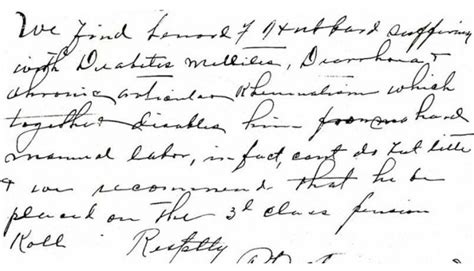 We find Lenard F Hubbard suffering
with Diabetes Mellites, Diarrhoea &
chronic articular Rheumatism which
together disables him from hard
manual labor, in fact, cant do but little
& we recommend that he be
placed on the 3d class pension
Roll Resptly